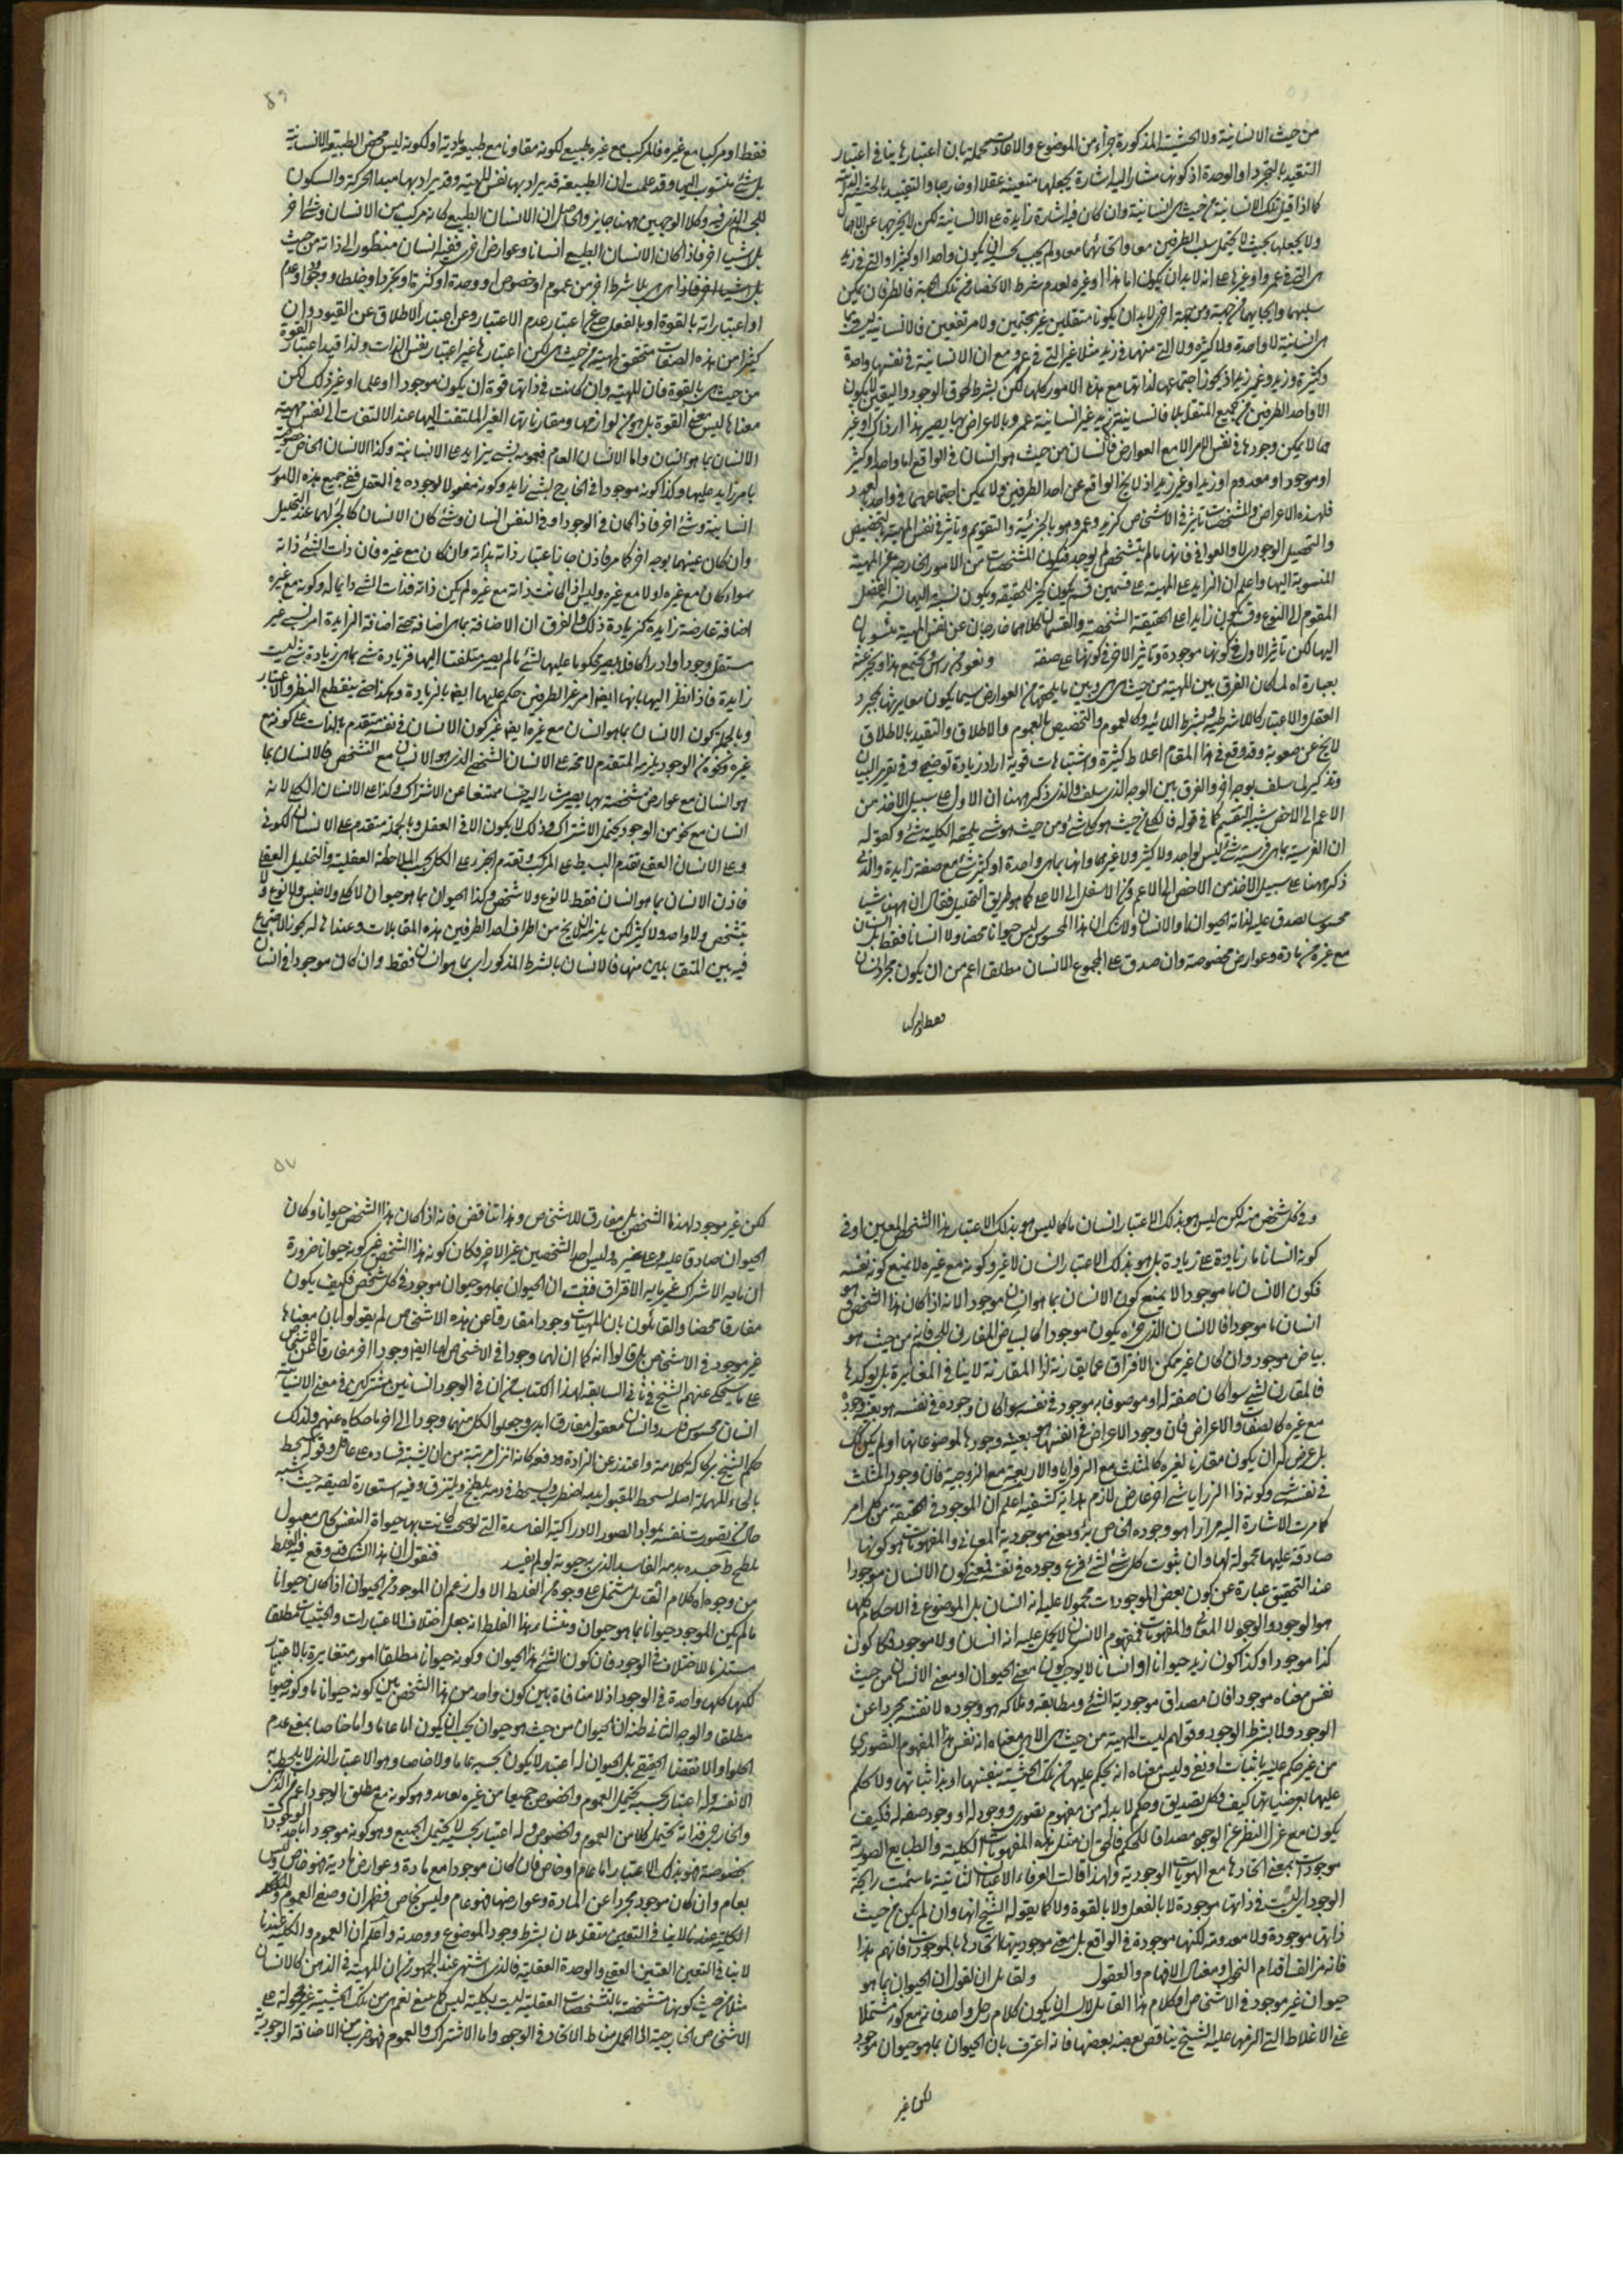 من حيث الانسانية ولا الحيثية المذكورة جزأ من الموضوع والاعادت محملة بان اعتبارها ينافى اعتبار
التقييد بالتجرد او الوحدة اذ كونها مشارا اليه اشارة يجعلها متعينة عقلا او خارجا والتقييد بالحيثية
كما اذا قيل تلك الانسانية من حيث هى انسانية وان كان فيه اشارة زايدة على الانسانية لكن لا يخرجها عن
ولا يجعلها بحيث لا يحتمل سلب الطرفين معا واتحادهما معا ولم يجب بحسبه ان يكون واحدا او كثيرا والتى فى زيد
هى التى فى عمرو او غيرها على انه لا بد ان يكون اما هذا او غيره لعدم شرط الانحصار فى تلك فالطرفان يمكن
سلبهما وايجابهما من جهة ومن جهة اخرى لا بد ان يكونا متقابلين غير مجتمعين ولا مرتفعين فالانسانية
هى انسانية لا واحدة ولا كثيرة ولا التى منهما فى زيد مثلا غير التى فى عمرو مع ان الانسانية فى نفسها واحدة
وكثيرة وزيد وغير زيد اذ يجوز اجتماعها لذاتها مع هذه الامور كلها لكن بشرط لحوق الوجود والتعين لا يكون
الا واحد الطرفين من جميع المتقابلات فانسانية زيد غير انسانية عمرو بالاعراض بها يصير هذا او ذاك او غير
مما لا يمكن وجودها فى نفس الامر الا مع العوارض فالانسان من حيث هو انسان فى الواقع اما واحد او كثير
او موجود او معدوم او زيد او غير زيد اذ لا يخ الواقع عن احد الطرفين ولا يمكن اجتماعهما فى واحد بالعدد
فلهذه الاعراض والمشخصات تاثير فى الاشخاص كزيد وعمرو وهو بالجزئية والتقويم وتاثير فى نفس المهية بالتخصيص
والتحصيل الوجودى لا والعوا فى فانها ما لم يتشخص لم يوجد فيكون المشخصات من الامور الخارجة عن المهية
المنسوبة اليها واعلم ان الزايد على المهية على قسمين قسم يكون كجزء للحقيقة ويكون نسبته اليها نسبة الفصل
المقوم الى النوع وقد يكون زايدا على الحقيقة الشخصية والقسمان كلاهما خارجان عن نفس المهية منسوبان
اليها لكن تاثير الاول فى كونها موجودة وتاثير الاخر فى كونها على صفة ونعود من رأس
بعبارة اه لما كان الفرق بين المهية من حيث هى هى وبين ما يلحقها من العوارض سيما يكون مغايرتها بمجرد
العقل والاعتبار كاللا شرطية وبشرط اللائية وكالعموم والتخصيص بالعموم والاطلاق والتقيد بالاطلاق
لا يخ عن صعوبة وقد وقع فى هذا المقام اغلاط كثيرة واشتباهات قوية اراد زيادة توضيح وفى تقرير البيان
وتذكير لما سلف بوجه اخر والفرق بين الوجه الذى سلف والذى ذكر ههنا ان الاول على سبيل الاخذ من
الاعم الى الاخص شبيه التقسيم كما فى قوله فالكلى من حيث هو كلى شئ ومن حيث هو شئ يلحقه الكلية شئ وكقوله
ان الفرسية بما هى فرسية شئ ليس بواحد ولا كثير ولا غيرهما وانها بما هى واحدة او كثير شئ مع صفة زايدة والذى
ذكر ههنا على سبيل الاخذ من الاخص الى الاعم ومن الاسفل الى الاعلى كما هو طريق التحليل فقال ان ههنا شيئا
محسوسا يصدق عليه لذاته الحيوان او الانسان ولا شك ان هذا المحسوس ليس حيوانا محضا ولا انسانا فقط بل انسان
مع غيره من مادة وعوارض مخصوصة وان صدق على المجموع الانسان مطلقا اعم من ان يكون مجرد انسان
فقط او مركبا
٥٦
فقط او مركبا مع غيره فالمركب مع غيره طبيعى لكونه مقاونا مع طبيعة مادية او لكونه ليس محض الطبيعة الانسانية
بل شئ منسوب اليها وقد علمت ان الطبيعة قد يراد بها نفس المهية وقد يراد بها مبدأ الحركة والسكون
للجسم الذى فيه وكلا الوجهين ههنا جايز والحاصل ان الانسان الطبيعى كانه مركب من الانسان وشئ اخر
بل اشياء اخر فاذا كان الانسان الطبيعى انسانا وعوارض اخرى ففيه انسان منظور الى ذاته من حيث
هى هى بلا شرط اخر من عموم او خصوص او وحدة او كثرة او تجرد او خلط او وجود او عدم
او اعتبار انه بالقوة او بالفعل حتى عن اعتبار عدم الاعتبار وعن اعتبار الاطلاق عن القيود وان
كثيرا من هذه الصفات متحقق للمهية من حيث هى لكن اعتبارها غير اعتبار نفس الذات ولذا قيد اعتبار القوة
من حيث هى بالقوة فان المهية وان كانت فى ذاتها قوة ان يكون موجودا او على او غير ذلك لكن
معناها ليس معنى القوة بل هو من لوازمها ومقارناتها الغير الملتفت اليها عند الالتفات الى نفس مهية
الانسان بما هو انسان واما الانسان العام فهو مهية شئ زايد على الانسانية وكذا الانسان الخاص خصوصية
بامر زايد عليها وكذا كونه موجودا فى الخارج لشئ زايد وكونه معقولا لوجوده فى العقل ففى جميع هذه الامور
انسانية وشئ اخر فاذا كان فى الوجود او فى النفس انسان وشئ كان الانسان كالجزء لهما عند التحليل
وان كان عينهما بوجه اخر كما مر فاذن جاز اعتبار ذاته بذاته وان كان مع غيره فان ذات الشئ ذاته
سواء كان مع غيره او لا مع غيره وليس اذا كانت ذاته مع غيره لم يكن ذاته فذات الشئ دايما له وكونه مع غيره
اضافة عارضة زايدة كزيادة ذلك والفرق ان الاضافة بما هى اضافة اى اضافة الزايدة امر نسبى غير
مستقل وجودا وادراكا فلا يصير محكوما عليها لشئ ما لم يصر ملتفتا اليها فزيادة شئ بما هى زيادة شئ ليست
زايدة فاذا نظر اليها بانها ايضا امر غير الطرفين حكم عليها ايضا بالزيادة وهكذا حتى ينقطع النظر والاعتبار
وبالجملة كون الانسان بما هو انسان مع غيره ايضا غير كون الانسان فى نفسه متقدم بالذات على كونه مع
غيره نحو من الوجود يلزمه المتقدم لا محة على الانسان الشخصى الذى هو الانسان مع التشخص فالانسان بما
هو انسان مع عوارض مشخصة بها يصير مشارا اليه حسا ممتنعا عن الاشتراك وكذا على الانسان الكلى لانه
انسان مع نحو من الوجود يحتمل الاشتراك وذلك لا يكون الا فى العقل وبالجملة متقدم على الانسان الكونى
وعلى الانسان العقلى تقدم البسيط على المركب وتقدم الجزء على الكل بحسب الملاحظة العقلية والتحليل العقلى
فاذن الانسان بما هو انسان فقط لا نوع ولا شخص وكذا الحيوان بما هو حيوان لا كلى ولا جنس ولا نوع ولا
شخص ولا واحد ولا كثير لكن يلزمه ان لا يخ من اطراف احد الطرفين بهذه المقابلات وعندها له كونه لا
فيه بين المتقابلين منها فالانسان بالشرط المذكور اى بما هو انسان فقط وان كان موجودا فى انسان
وفى كل شخص منه لكن ليس هو بذلك الاعتبار انسان ما كما ليس هو بذلك الاعتبار هذا الشخص المعين او فى
كونه انسانا ما زيادة على زيادة بل هو بذلك الاعتبار انسان لا غير وكونه مع غيره لا يمنع كونه نفسه
فكون الانسان ما موجودا لا يمنع كون الانسان بما هو انسان موجودا لانه اذا كان هذا الشخص هو
انسان ما موجودا فالانسان الذى جزؤه يكون موجودا كالبياض المفارق للجوهر فانه من حيث هو
بياض موجود وان كان غير ممكن الافتراق عما يقارنه اذ المقارنة لا ينافى المغايرة بل يؤكدها
فالمقارن لشئ سواء كان صفة له او موصوفا به موجود فى نفسه سواء كان وجوده فى نفسه هو بعينه وجوده
مع غيره كالصفات والاعراض فان وجود الاعراض فى انفسها هو بعينه وجودها لموضوعاتها او لم يكن كذلك
بل عرض له ان يكون مقارنا لغيره كالمثلث مع الزوايا والاربعة مع الزوجية فان وجود المثلث
فى نفسه شئ وكونه ذا الزوايا شئ اخر عارض لازم هداية كشفية اعلم ان الموجود فى الحقيقة من كل امر
كما مرت الاشارة اليه مرارا هو وجوده الخاص به ومعنى موجودية المعانى والمفهومات هو كونها
صادقة عليها محمولة لها وان ثبوت كل شئ لشئ فرع وجوده فى نفسه فمعنى كون الانسان موجودا
عند التحقيق عبارة عن كون بعض الموجودات محمولا عليه انه انسان بل الموضوع فى الاحكام كلها
هو الوجود والوجود لا المعانى والمفهومات فمفهوم الانسان لا يحمل عليه انه انسان ولا موجود فكما كون
كذا موجودا وكذا كون زيد حيوانا او انسانا لا يوجب كون معنى الحيوان او معنى الانسان من حيث
نفس معناه موجودا فان مصداق موجودية الشئ ومطابقه وملاكه هو وجوده لا نفسه مجردا عن
الوجود ولا بشرط الوجود وقولهم ليست المهية من حيث هى الا هى معناه انه نفس هذا المفهوم التصورى
من غير حكم عليه باثبات او نفى وليس معناه انه يحكم عليها من تلك الحيثية بنفسها او بذاتياتها ولا حكم
عليها بعرضياتها كيف وكل تصديق وحكم لا بد له من مفهوم يتصور ووجود له او وجود صفة له فكيف
يكون مع عزل النظر عن الوجود مصداقا للحكم فالحق ان مثل هذه المفهومات الكلية والطبايع الصورية
موجودات بمعنى اتحادها مع الهويات الوجودية ولهذا قالت العرفاء الاعيان الثابتة ما شمت رايحة
الوجود اى ليست فى ذاتها موجودة لا بالفعل ولا بالقوة ولا كما يقوله الشيخ انها وان لم يكن من حيث
ذاتها موجودة ولا معدومة لكنها موجودة فى الواقع بل معنى موجوديتها اتحادها بالموجودات فافهم هذا
فانه مزالق اقدام الفحول ومضال الافهام والعقول ولقائل ان يقول ان الحيوان بما هو
حيوان غير موجود فى الاشخاص وكلام هذا القايل لا ان يكون كلام رجل واحد فانه مع كونه مشتملا
على الاغلاط التى الزمها عليه الشيخ يناقض بعضه بعضها فانه اعترف بان الحيوان بما هو حيوان موجود
لكن غير
٥٧
لكن غير موجود لهذا الشخص بل مفارق للاشخاص وهذا تناقض فانه اذا كان هذا الشخص حيوانا وكان
الحيوان صادقا عليه وعلى غيره وليس احد الشخصين غير الاخر فكان كونه هذا الشخص غير كونه حيوانا ضرورة
ان ما به الاشتراك غير ما به الافتراق فثبت ان الحيوان بما هو حيوان موجود فى كل شخص فكيف يكون
مفارقا محضا والقائلون بان للمهيات وجودا مفارقا عن هذه الاشخاص لم يقولوا بان معناها
غير موجود فى الاشخاص بل قالوا انه كما ان لها وجودا فى الاشخاص لها ايضا وجودا اخر مفارقا عن الاشخاص
على ما سيحكى عنهم الشيخ فى فى السابعة لهذا الكتاب من ان فى الوجود انسانين مشتركين فى معنى الانسانية
انسان محسوس فاسد وانسان معقول مفارق ابدى وجعلوا لكل منهما وجودا الى اخر ما حكاه عنهم ولذلك
حكم الشيخ بركاكة كلامه واعتذر عن ايراده ودفعه كانه انزل مرتبة من ان يشتبه فساده على عاقل وقوله
بالحاء المهملة اصله
حال من تصورت نفسه بمواد الصور الادراكية الفاسدة التى لو صحت كانت بها حيوة النفس كحال مقتول
يلطخ جسده بدمه الفاسد الذى به حيوته لو لم يفسد فنقول ان هذا الشك قد وقع فيه الغلط
من وجوه اه كلام القايل مشتمل على وجوه من الغلط الاول زعم ان الموجود من الحيوان اذا كان حيوانا
ما لم يكن الموجود حيوانا بما هو حيوان ومنشأ هذا الغلط انه جعل اختلاف الاعتبارات والحيثيات مطلقا
مستلزما لاختلاف فى الوجود فان كون الشئ هذا الحيوان وكونه حيوانا مطلقا امور متغايرة بالاعتبار
لكنها كلها واحدة فى الوجود اذ لا منافاة بين كون واحد من هذا الشخص بين كونه حيوانا ما وكونه حيوانا
مطلقا والوجه الثانى ظنه ان الحيوان من حيث هو حيوان يجب ان يكون اما عاما واما خاصا بمعنى عدم
الخلو او الانفصال الحقيقى بل الحيوان له اعتبار لا يكون بحسبه عاما ولا خاصا وهو الاعتبار الذى لا يلحظ به
الا نفسه وله اعتبار بحسبه يحتمل العموم والخصوص جميعا من غيره وهو كونه مع مطلق الوجود اعم من الذهنى
والخارجى فذاته يحتمل كلا من العموم والخصوص وله اعتبار بحسبه لا يحتمل الجميع وهو كونه موجودا باحد الوجودات
بخصوصه فهو بذلك الاعتبار اما عام او خاص فان كان موجودا مع مادة وعوارض مادية فهو خاص وليس
بعام وان كان موجودا مجردا عن المادة وعوارضها فهو عام وليس بخاص فظهر ان وصفى العموم
الكلية عندنا لا ينافى التعين متقابلان بشرط وجود الموضوع ووحدته واعلم ان العموم والكلية عندنا
لا ينافى التعين المتعين العقلى والوحدة العقلية فالذى اشتهر عند الجمهور من ان المهية فى الذهن كالانسان
مثلا من حيث كونها متشخصة بالتشخصات العقلية ليست بكلية ليس كل منع نعم هى من تلك الحيثية غير محمولة على
الاشخاص الخارجية اذ الحمل مناط الاتحاد فى الوجود واما الاشتراك والعموم فهو ضرب من الاضافة الوجودية